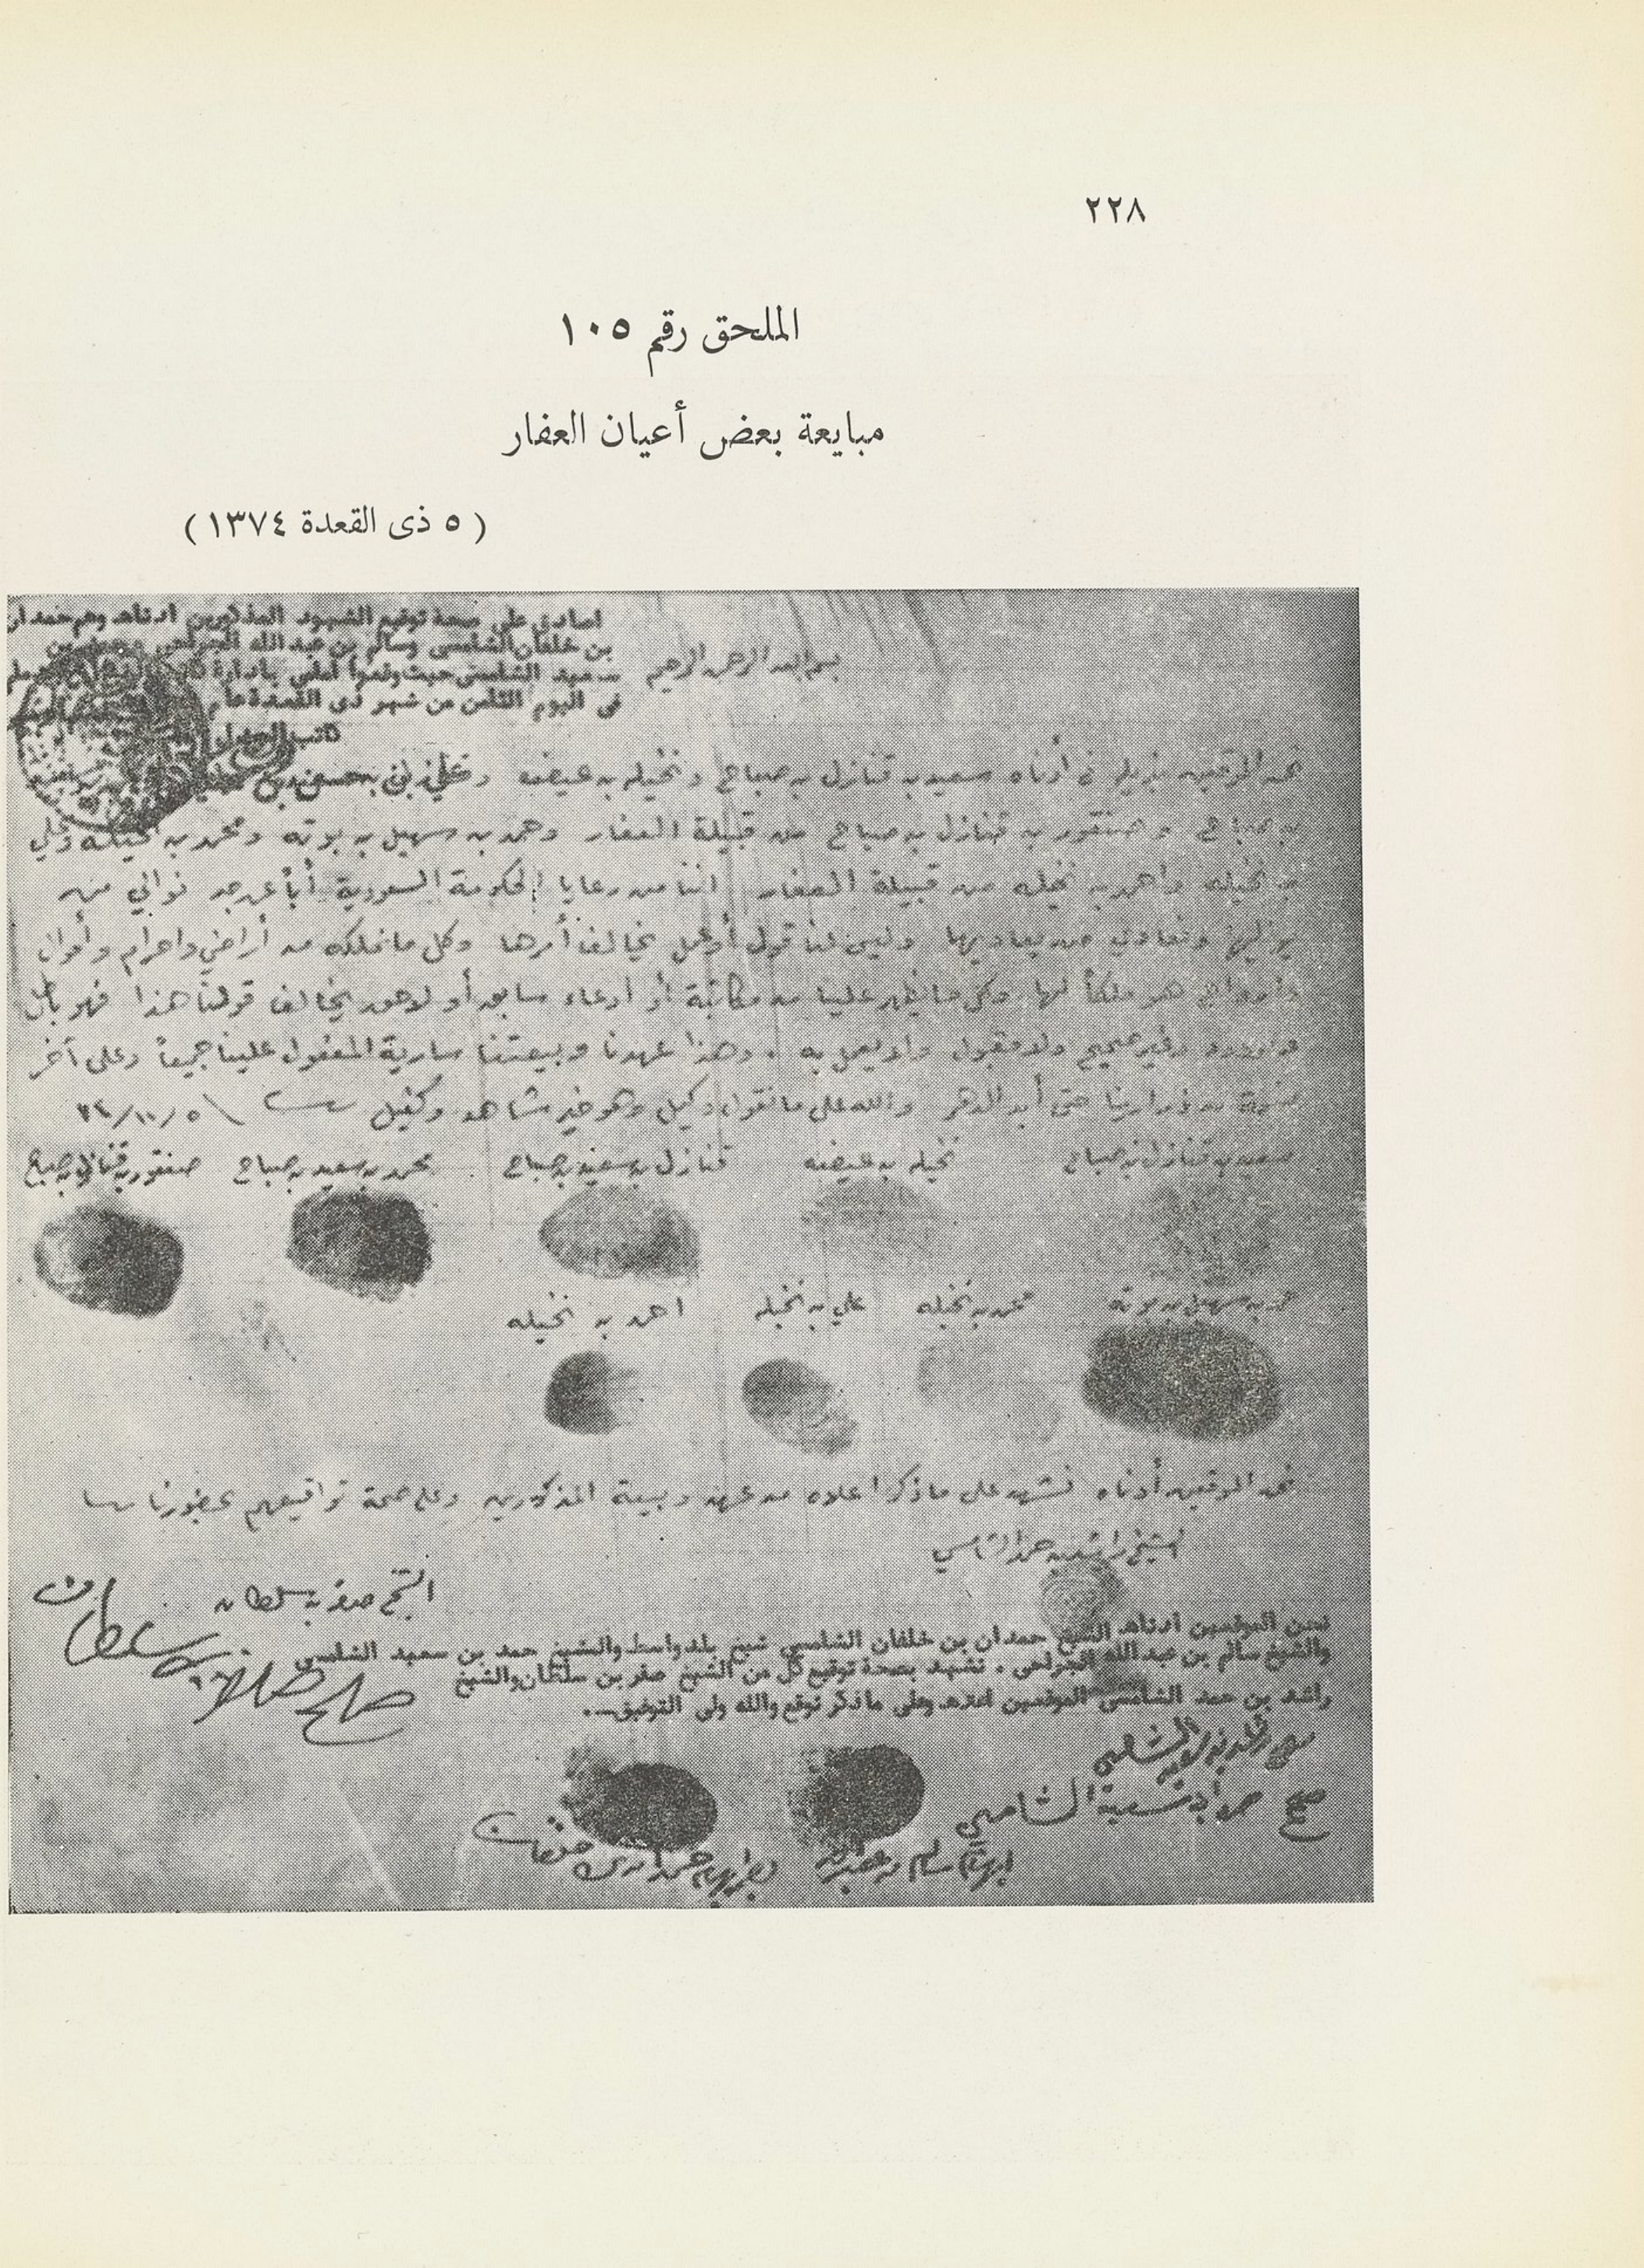 ٢٢٨
الملحق رقم ١٠٥
مبايعة بعض أعيان العفار
( ٥ ذى القعدة ١٣٧٤ )
اصادق على صحة توقيع الشهود المذكورين ادناه وهم حمدان
بن خلفان الشامسى وسالم بن عبد الله
سعيد الشامسى حيث وقعوا امامى بادارة
فى اليوم الثامن من شهر ذى القعدة عام
كاتب العدل
بسم الله الرحمن الرحيم
نحن الموقعين في أدناه سعيد بن قنازل بن صباح ونخيله بن عيضه
بن صباح وصنقور بن قنازل بن صباح من قبيلة العفار وحمد بن سهيل بن بوته ومحمد بن نخيله وعلي
بن نخيله واحمد بن نخيله من قبيلة العفار اننا من رعايا الحكومة السعودية أباً عن جد نوالي من
يواليها ونعادي من يعاديها وليس لنا قول أو عمل يخالف أمرها وكل ما نملكه من أراضي واحرام وأموال
وأرواح هو ملكاً لها وكل ما يظهر علينا من مكاتبة أو ادعاء سابق أو لاحق يخالف قولنا هذا فهو باطل
ومردود وغير صحيح ولا مقبول ولا يعمل به . وهذا عهدنا وبيعتنا سارية المفعول علينا جميعاً وعلى آخر
نسمة من ذرارينا حتى أبد الدهر والله على ما نقول وكيل وهو خير شاهد وكفيل
سعيد بن قنازل بن صباح نخيله بن عيضه قنازل بن سعيد بن صباح محمد بن سعيد بن صباح صنقور بن قنازل بن صباح
حمد بن سهيل بن بوته محمد بن نخيله علي بن نخيله احمد بن نخيله
نحن الموقعين أدناه نشهد على ما ذكر اعلاه من عهد وبيعة المذكورين وعلى صحة تواقيعهم بحضورنا
الشيخ راشد بن حمد الشامسي
الشيخ صقر بن سلطان
نحن الموقعين ادناه الشيخ حمدان بن خلفان الشامسي شيخ بلد واسط والشيخ حمد بن سعيد الشامسى
والشيخ سالم بن عبد الله الجراحى . نشهد بصحة توقيع كل من الشيخ صقر بن سلطان والشيخ
راشد بن حمد الشامسى الموقعين اعلاه وعلى ما ذكر نوقع والله ولى التوفيق ..
صحيح حمد بن سعيد الشامسي
ابهام سالم بن عبدالله